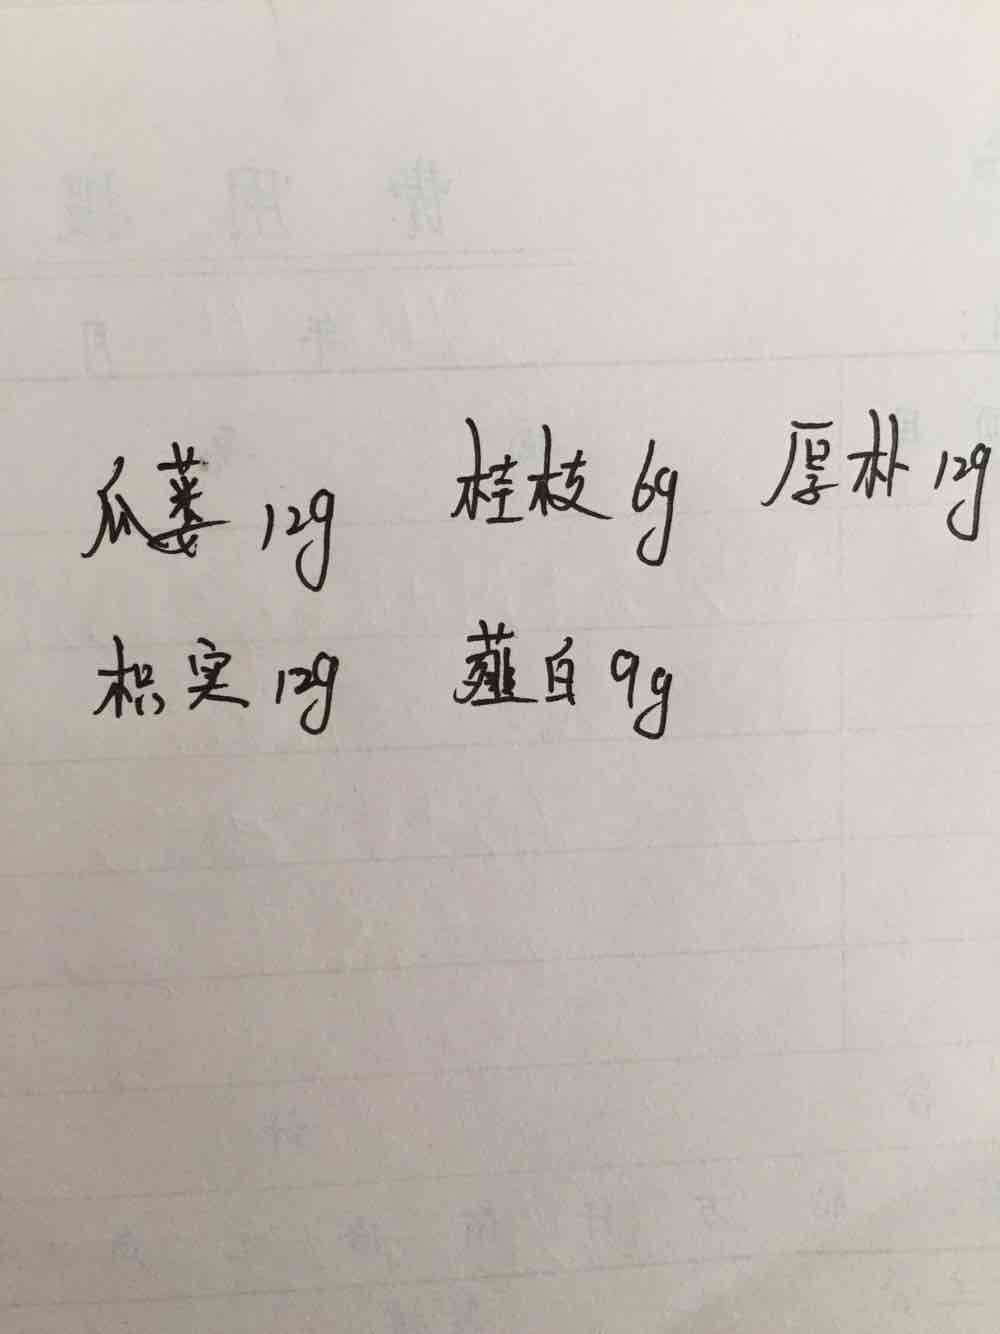 瓜蒌 12g 桂枝 6g 厚朴 12g
枳实 12g 薤白 9g